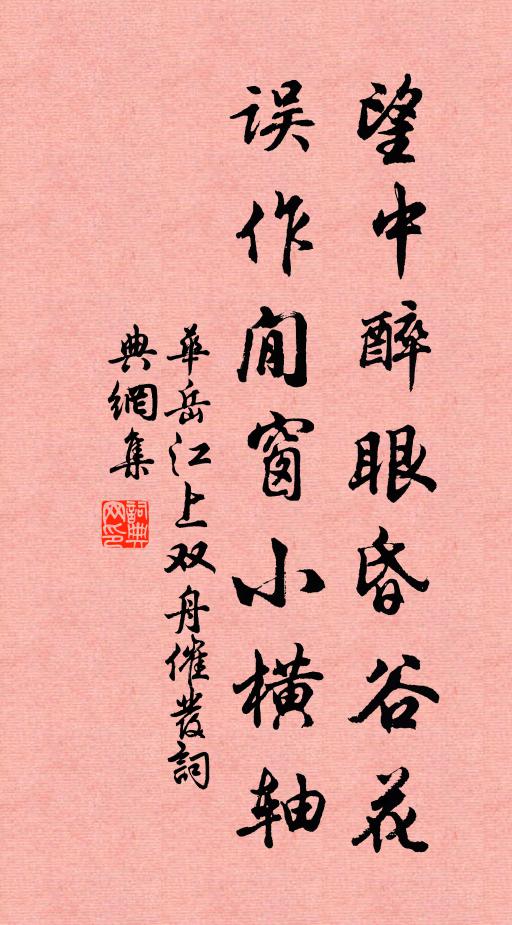 望中醉眼昏谷花
误作闲窗小横轴
華岳江上双舟催發詞
典網集
詞典网印